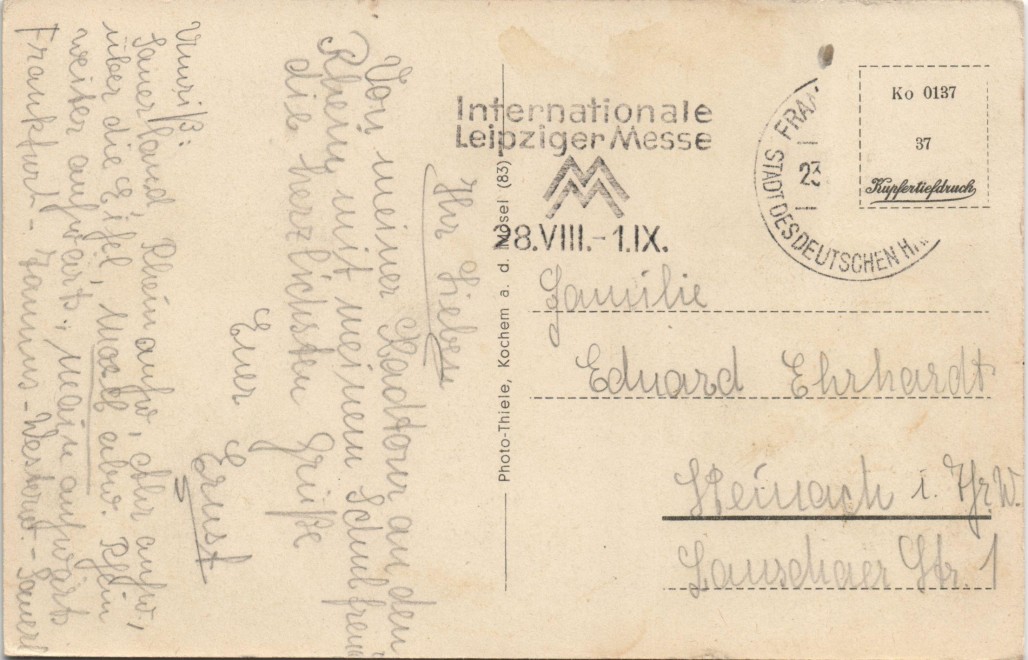 Ihr Lieben
Von meiner Radtour an den
Rhein mit meinem Schulfreund
die herzlichsten Grüße
Euer
Ernst
Umriß:
Sauerland, Rhein aufw., Ahr aufw.,
über die Eifel, Mosel abw. Rhein
weiter aufwärts, Main aufwärts
Frankfurt - Taunus - Westerw. - Sauerl
Internationale
Leipziger Messe
28.VIII.-1.IX.
FRA
23
STADT DES DEUTSCHEN H
Ko 0137
37
Kupfertiefdruck
Photo-Thiele, Kochem a. d. Mosel (83)
Familie
Eduard Ehrhardt
Steinach i. Thr. W.
Lauschaer Str. 1